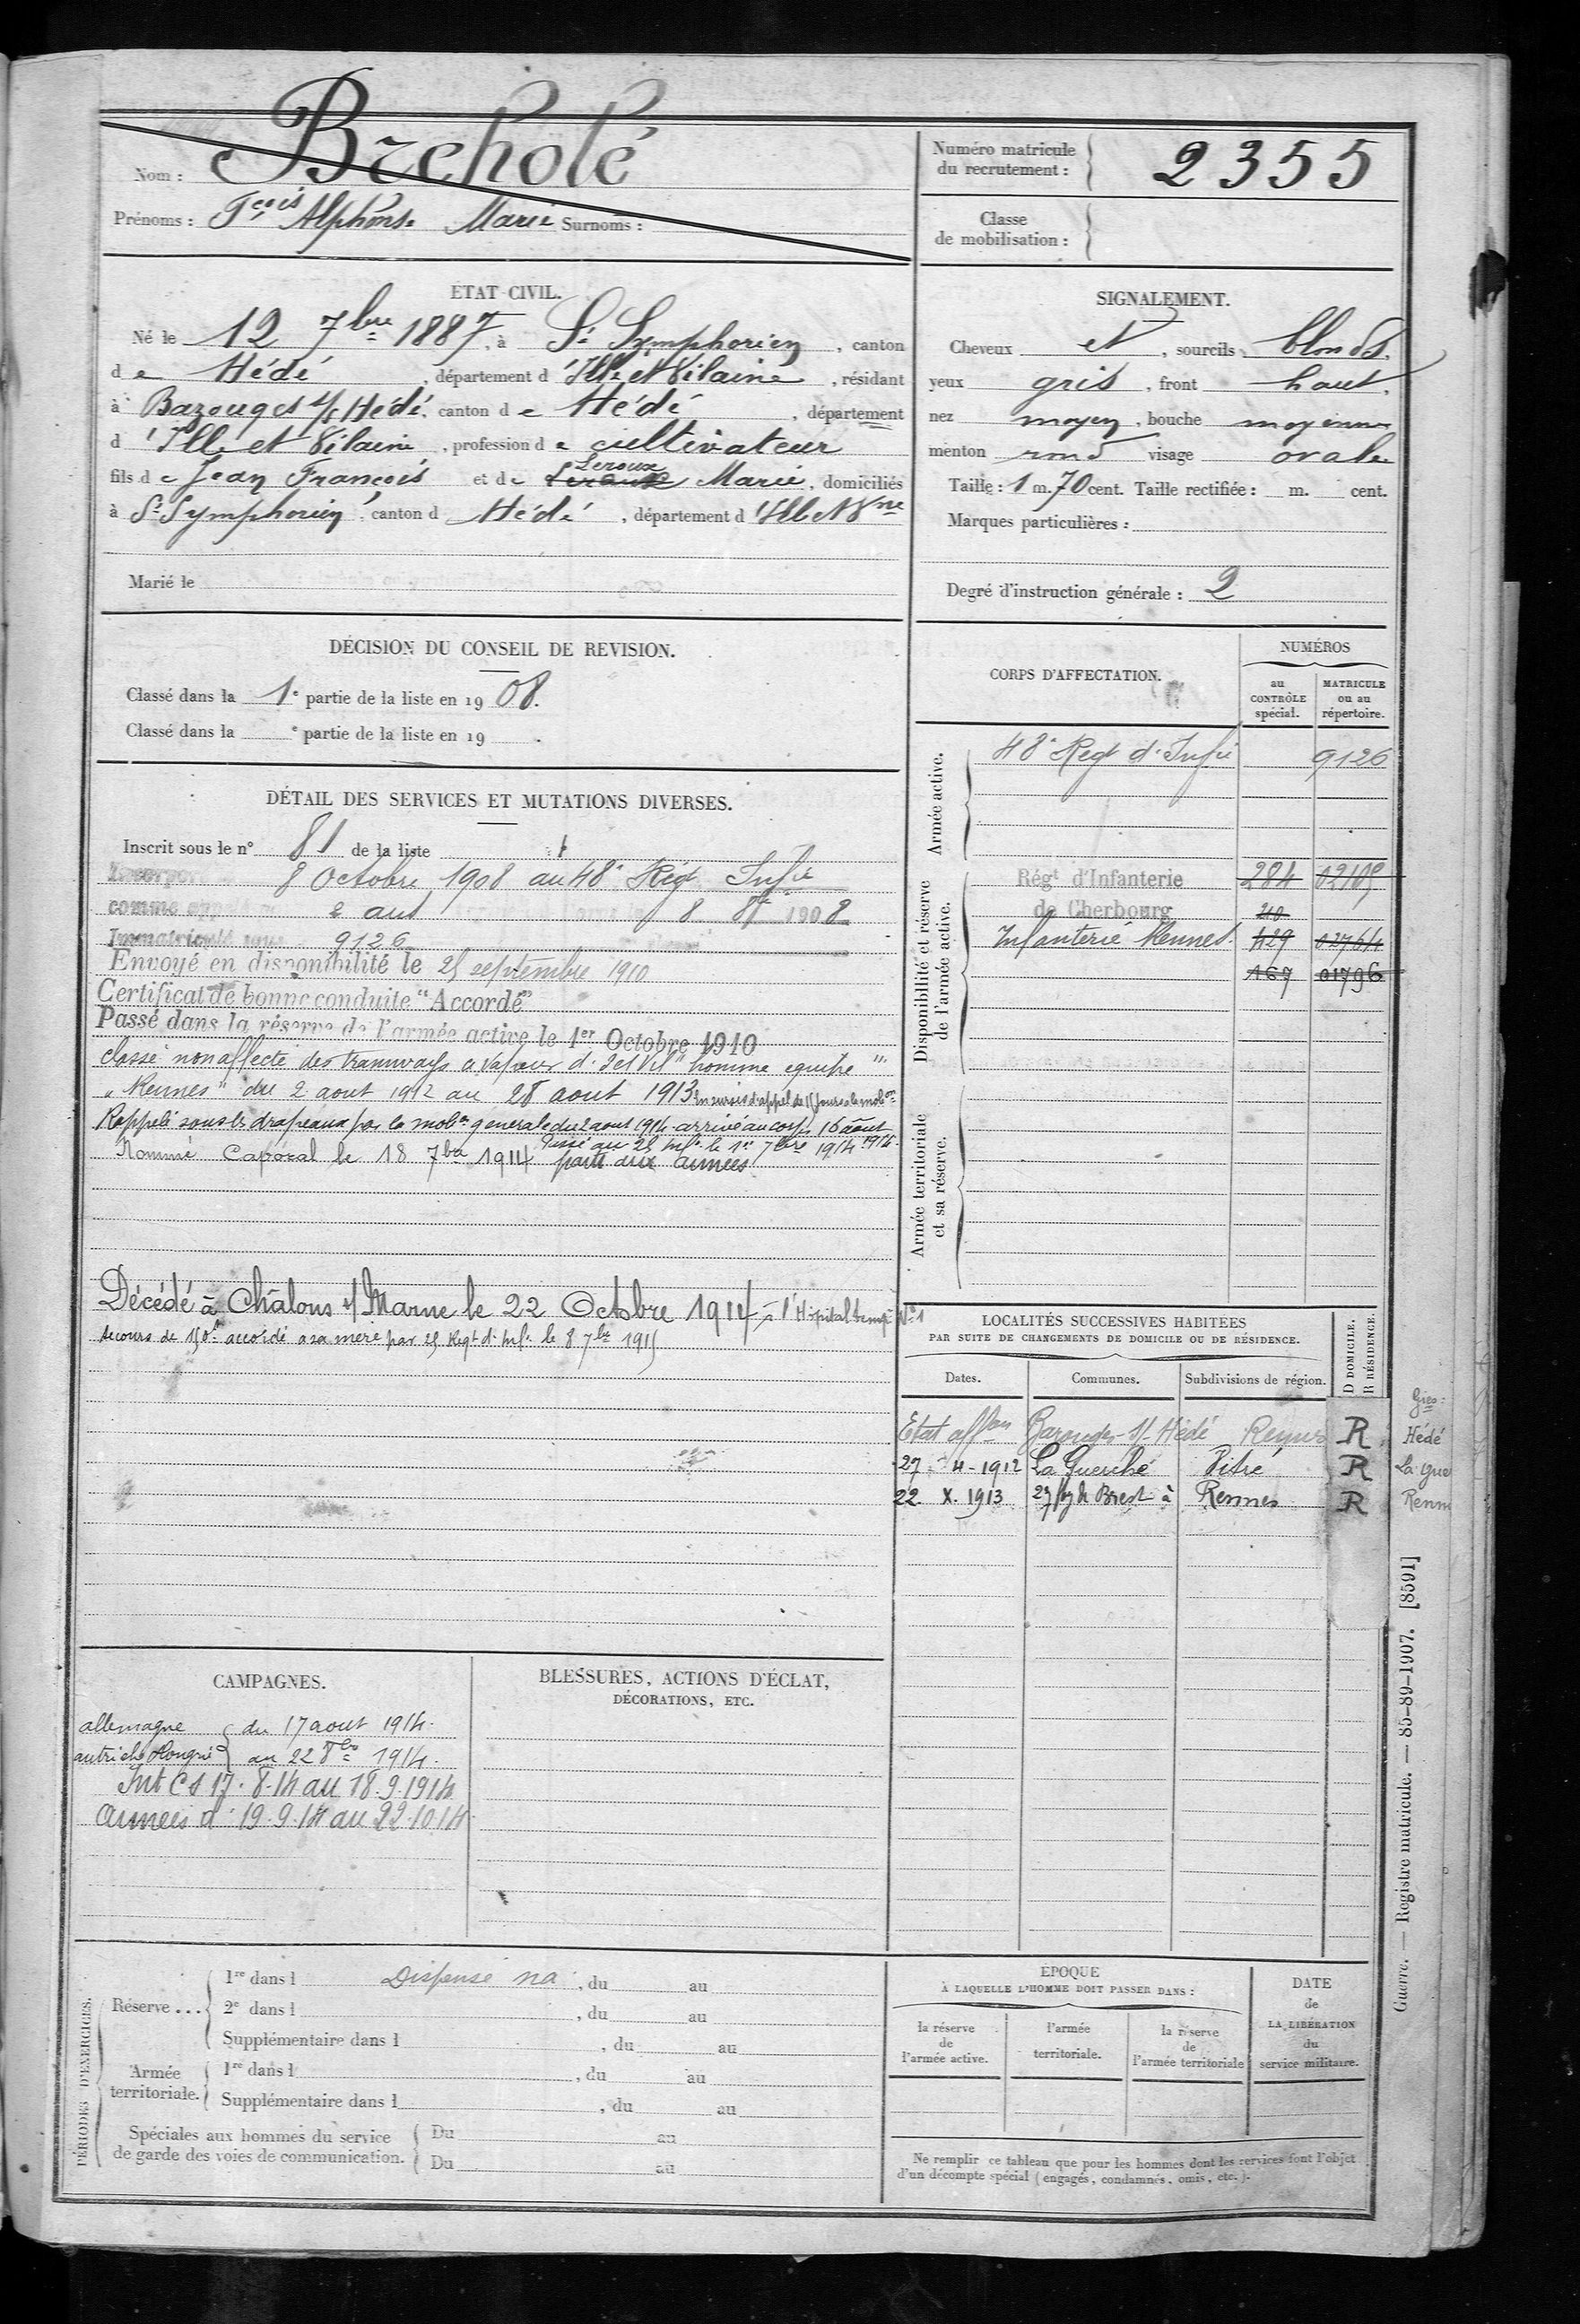 Nom : Breholé
Prénoms : Fçois Alphonse Marie Surnoms :
Numéro matricule
du recrutement :
2355
Classe
de mobilisation :
ÉTAT CIVIL.
Né le 12 7bre 1887, à St Symphorien, canton
de Hédé, département d'Ille et Vilaine, résidant
à Bazouges s/s Hédé, canton de Hédé, département
d'Ille et Vilaine, profession de cultivateur
fils de Jean François et de Leroux Marie, domiciliés
à St Symphorien, canton d Hédé, département d'Ille et Vne
Marié le
SIGNALEMENT.
Cheveux et, sourcils blonds.
yeux gris, front haut,
nez moyen, bouche moyenne
menton rond visage ovale
Taille : 1 m. 70 cent. Taille rectifiée : m. cent.
Marques particulières :
Degré d'instruction générale : 2
DÉCISION DU CONSEIL DE REVISION.
Classé dans la 1e partie de la liste en 1908.
Classé dans la e partie de la liste en 19 .
DÉTAIL DES SERVICES ET MUTATIONS DIVERSES.
Inscrit sous le n° 81 de la liste
8 Octobre 1908 au 48e Régt Infie
comme 2 ans 8 8bre 1908
Immatriculé sous 9126
Envoyé en disponibilité le 25 septembre 1910
Certificat de bonne conduite "Accordé"
Passé dans la réserve de l'armée active le 1er Octobre 1910
classé non affecté des tramways à vapeur d'I et Vil "homme equipe"
"Rennes" du 2 aout 1912 au 28 aout 1913 En sursis d'appel de 15 jours a la mobon
Rappelé sous les drapeaux par la mobon générale du 2 aout 1914 arrivé au corps 16 août 1914.
Passé au 25 Infie le 1er 7bre 1914
Nommé Caporal le 18 7bre 1914 parti aux armées
Décédé à Châlons s/ Marne le 22 Octobre 1914, à l'Hôpital temp. N° 1
Secours de 150f accordé à sa mère par 25 Regt d'Infie le 8 7bre 1915
CORPS D'AFFECTATION.
NUMÉROS
au
CONTRÔLE
spécial.
MATRICULE
ou au
répertoire.
Armée active.
48e Regt d'Infie 9126
Disponibilité et réserve
de l'armée active.
Régt d'Infanterie 284 02105
de Cherbourg 210
Infanterie Rennes. 429 02764
167 01796
Armée territoriale
et sa réserve.
LOCALITÉS SUCCESSIVES HABITÉES
PAR SUITE DE CHANGEMENTS DE DOMICILE OU DE RÉSIDENCE.
D DOMICILE.
R RÉSIDENCE.
Dates. Communes. Subdivisions de région.
Gies :
Etat affon Bazouges s/s Hédé Rennes R Hédé
27 4 1912 La Guerche Vitré R La Gue
22 X. 1913 27 fbg de Brest à Rennes R Renn
CAMPAGNES.
allemagne du 17 aout 1914.
autriche Hongrie au 22 8bre 1914.
Int CS 17.8.14 au 18.9.1914
Armées d: 19.9.14 au 22.10.14
BLESSURES, ACTIONS D'ÉCLAT,
DÉCORATIONS, ETC.
PÉRIODES D'EXERCICES.
Réserve ...
1re dans l Dispensé na, du au
2e dans l , du au
Supplémentaire dans l , du au
Armée
territoriale.
1re dans l , du au
Supplémentaire dans l , du au
Spéciales aux hommes du service
de garde des voies de communication.
Du au
Du au
ÉPOQUE
À LAQUELLE L'HOMME DOIT PASSER DANS :
la réserve
de
l'armée active.
l'armée
territoriale.
la réserve
de
l'armée territoriale
DATE
de
LA LIBÉRATION
du
service militaire.
Ne remplir ce tableau que pour les hommes dont les services font l'objet
d'un décompte spécial (engagés, condamnés, omis, etc.).
Guerre. — Registre matricule. — 85-89-1907. [8591]